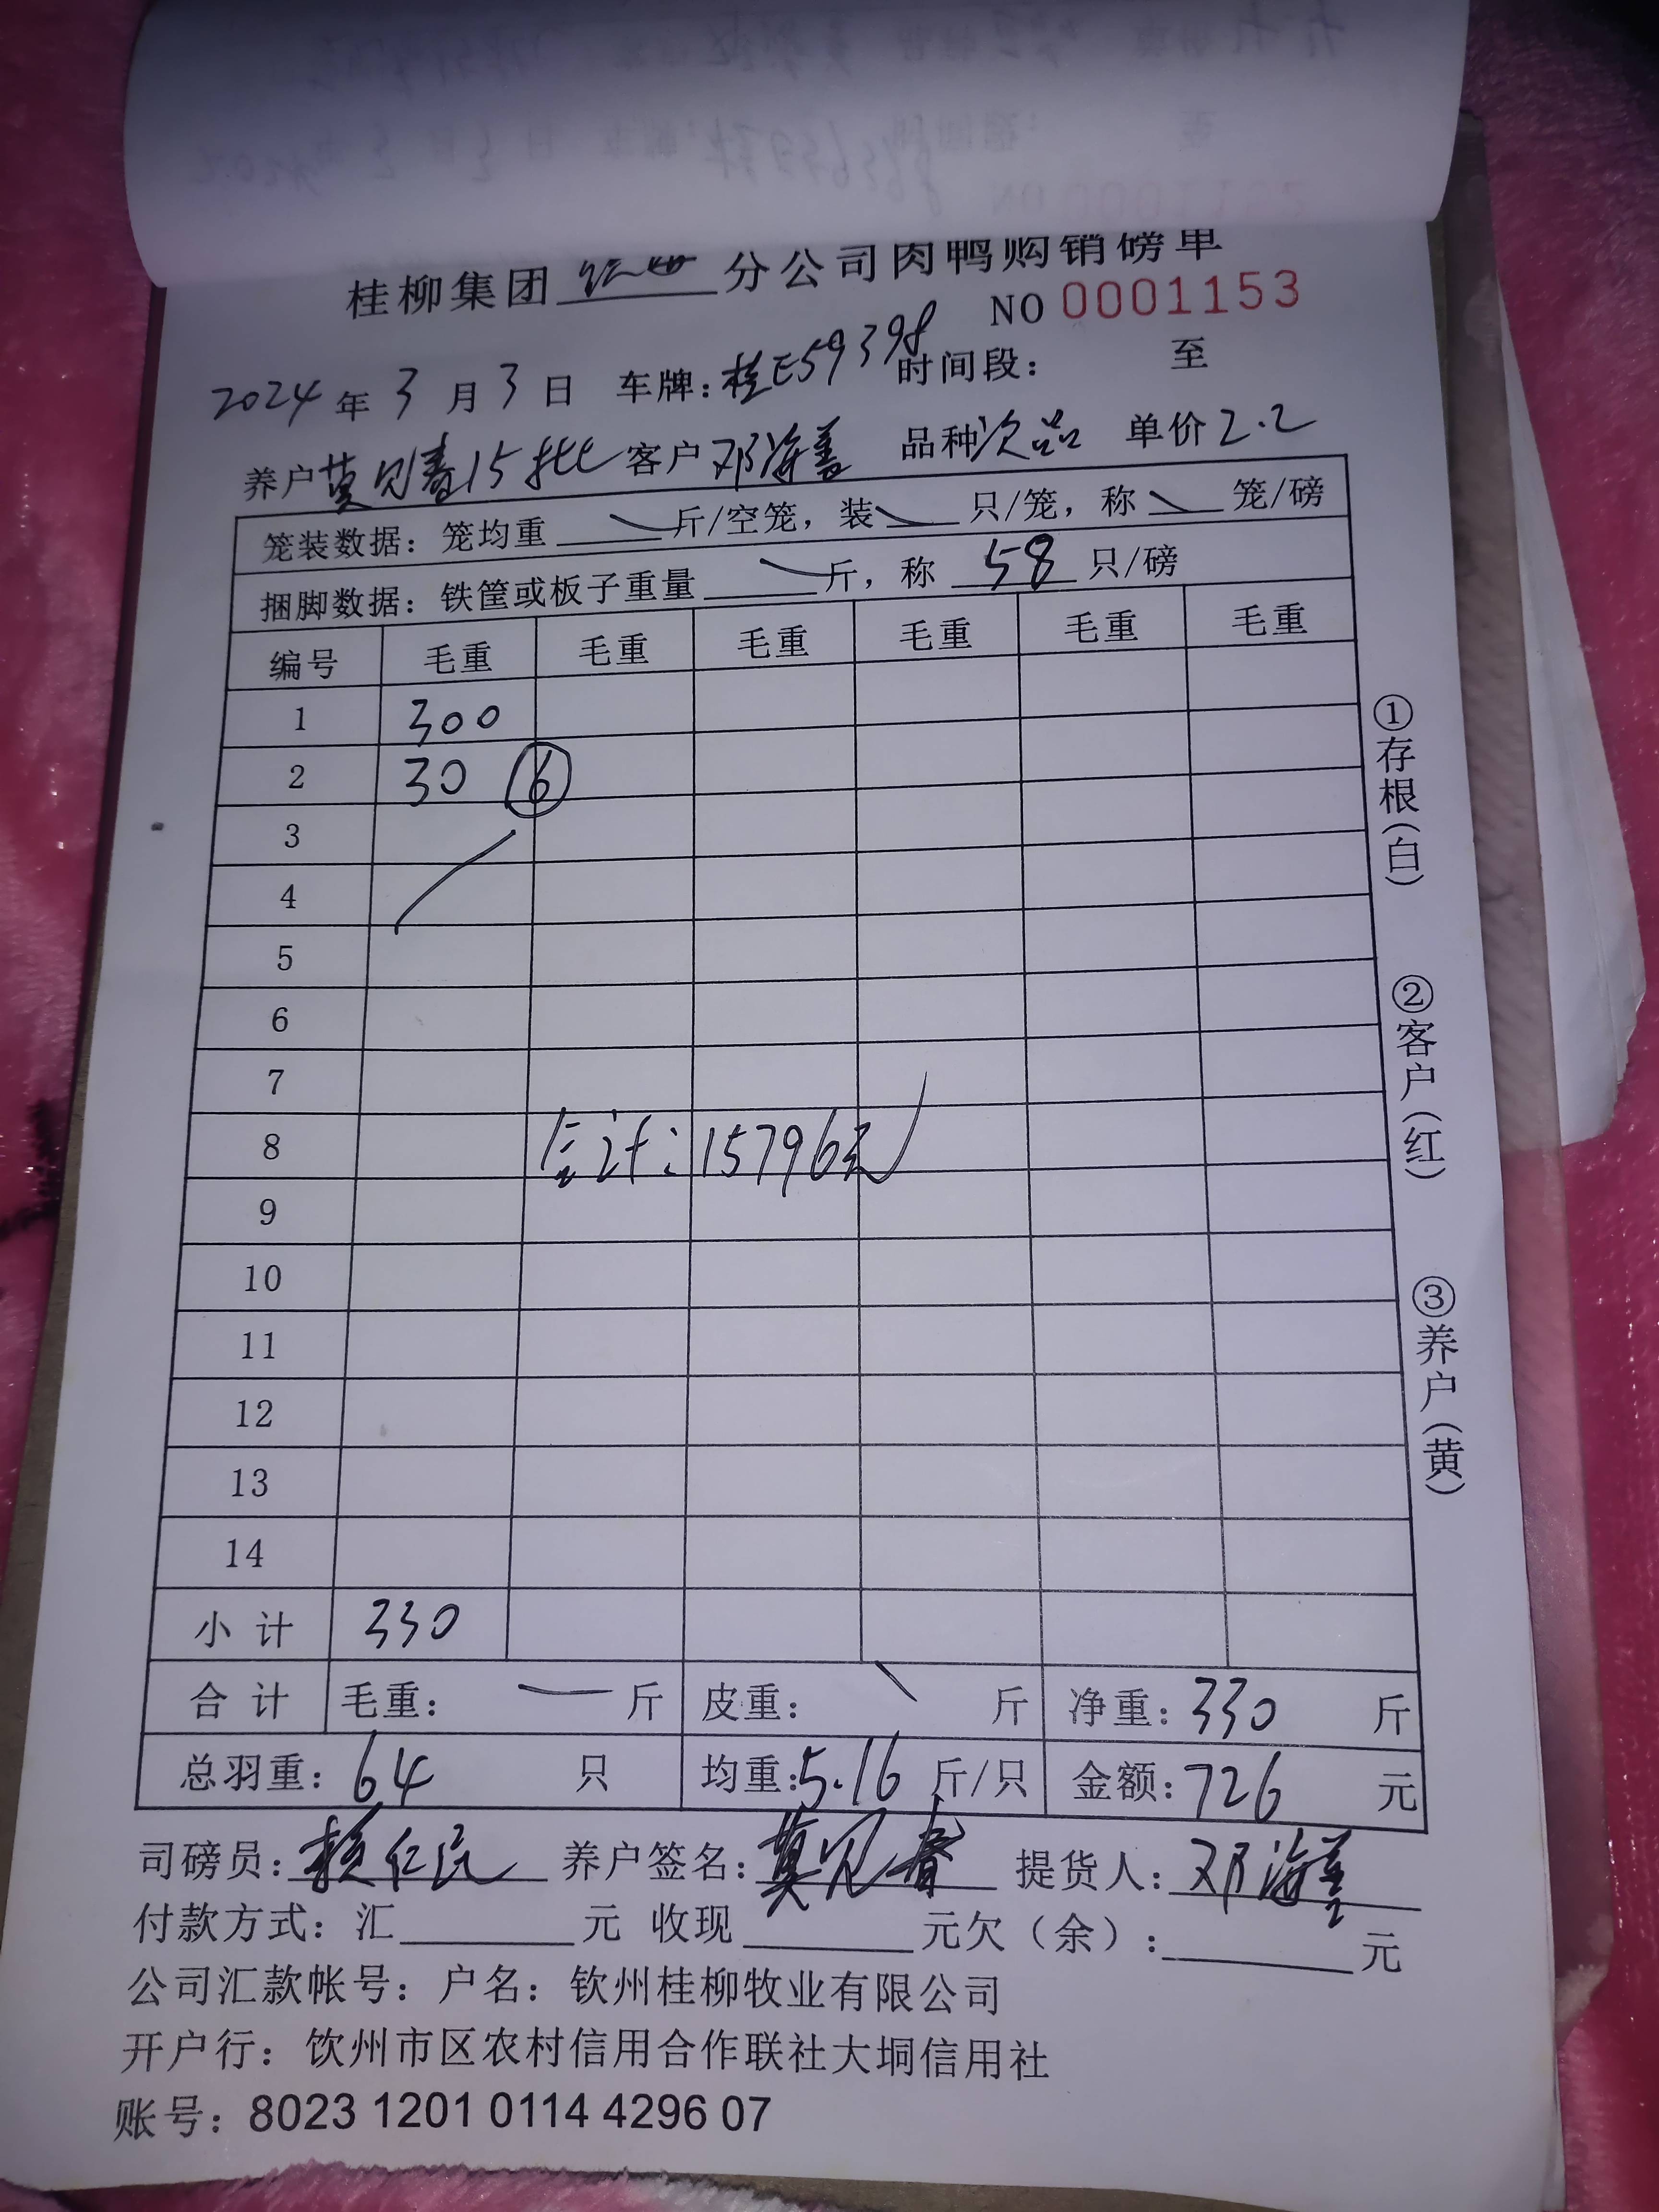 桂柳集团 分公司肉鸭购销磅单
NO 0001153
2024年3月3日 车牌:桂E59398 时间段: 至
养户莫见春15批 客户邓海盖 品种次品 单价2.2
笼装数据: 笼均重 斤/空笼, 装 只/笼, 称 笼/磅
捆脚数据: 铁筐或板子重量 斤, 称 58 只/磅
编号 毛重 毛重 毛重 毛重 毛重 毛重
1 300
2 30 ⑥
3
4
5
6
7
8 合计:15796元
9
10
11
12
13
14
小计 330
合计 毛重: 一 斤 皮重: 斤 净重:330 斤
总羽重:64 只 均重:5.16 斤/只 金额:726 元
司磅员:赖仁民 养户签名:莫见春 提货人:邓海盖
付款方式: 汇 元 收现 元欠(余): 元
公司汇款帐号: 户名: 钦州桂柳牧业有限公司
开户行: 钦州市区农村信用合作联社大垌信用社
账号: 8023 1201 0114 4296 07
①存根(白)
②客户(红)
③养户(黄)